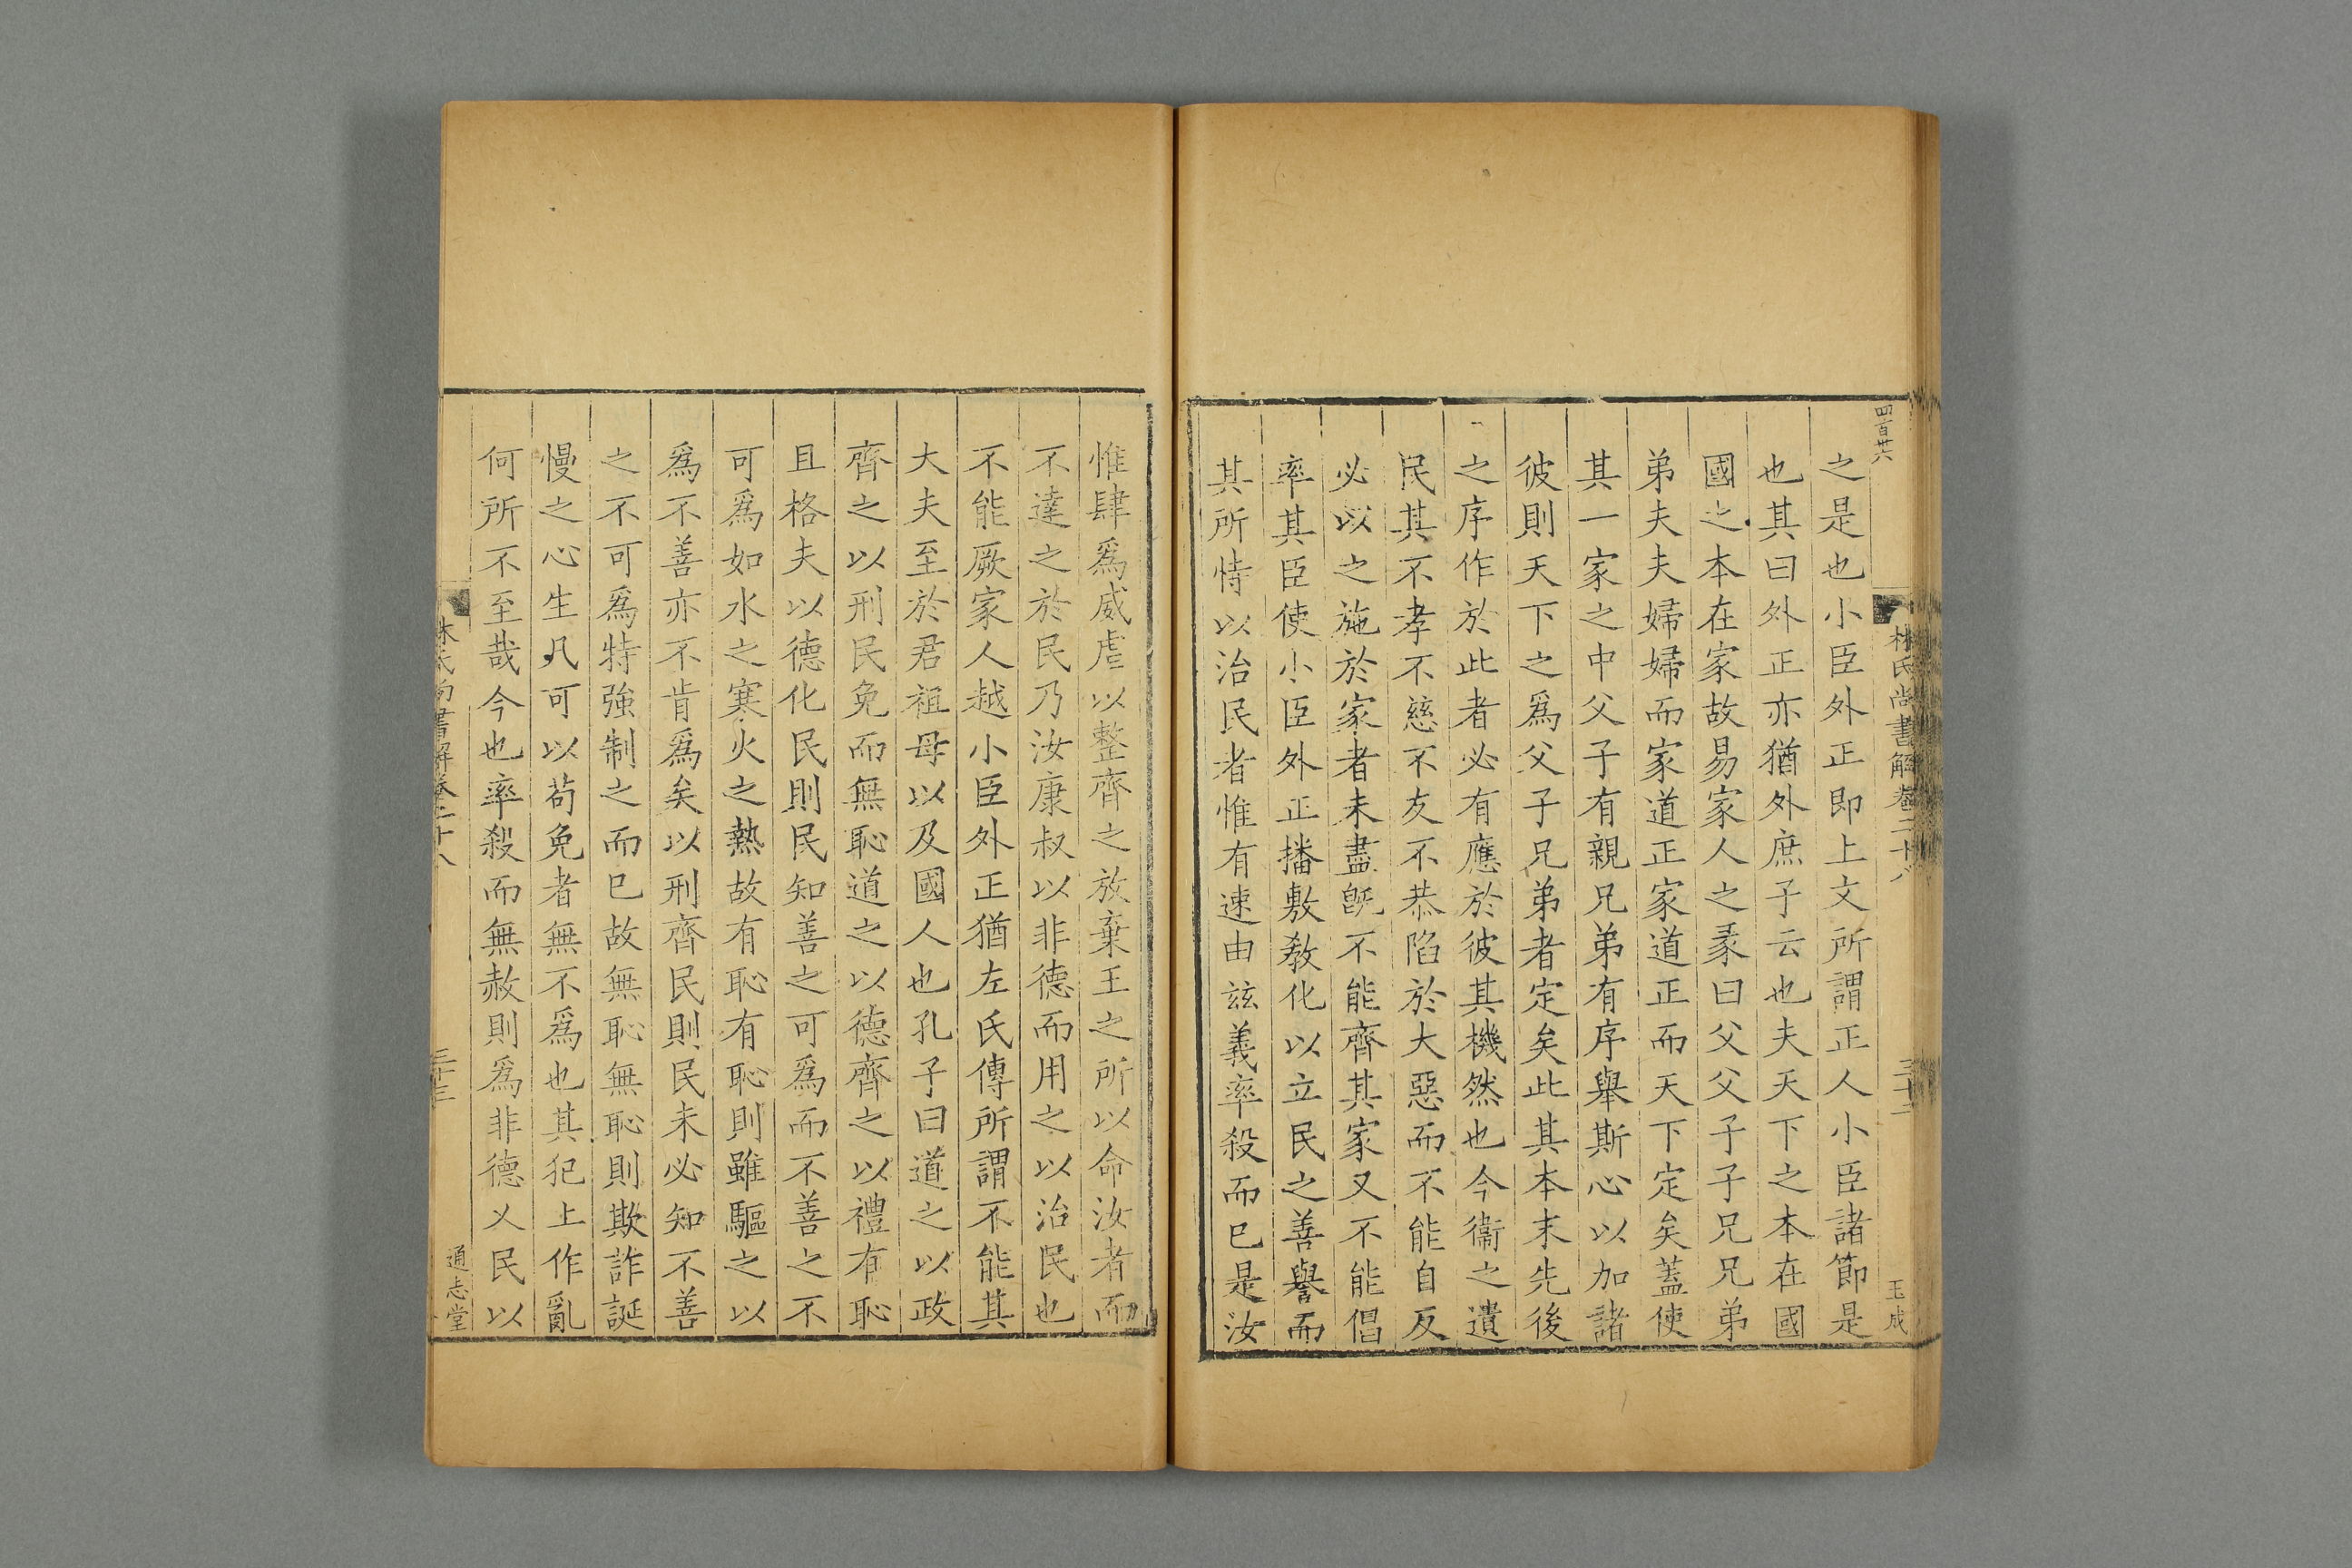 四百卅六
林氏尚書解卷二十八
三十二
玉成
之是也小臣外正即上文所謂正人小臣諸節是
也其曰外正亦猶外庶子云也夫天下之本在國
國之本在家故易家人之彖曰父父子子兄兄弟
弟夫夫婦婦而家道正家道正而天下定矣蓋使
其一家之中父子有親兄弟有序舉斯心以加諸
彼則天下之爲父子兄弟者定矣此其本末先後
之序作於此者必有應於彼其機然也今衞之遺
民其不孝不慈不友不恭陷於大惡而不能自反
必以之施於家者未盡旣不能齊其家又不能倡
率其臣使小臣外正播敷教化以立民之善譽而
其所恃以治民者惟有速由兹義率殺而已是汝
惟肆爲威虐以整齊之放棄王之所以命汝者而
不達之於民乃汝康叔以非德而用之以治民也
不能厥家人越小臣外正猶左氏傳所謂不能其
大夫至於君祖母以及國人也孔子曰道之以政
齊之以刑民免而無恥道之以德齊之以禮有恥
且格夫以德化民則民知善之可爲而不善之不
可爲如水之寒火之熱故有恥有恥則雖驅之以
爲不善亦不肯爲矣以刑齊民則民未必知不善
之不可爲特強制之而已故無恥無恥則欺詐誕
慢之心生凡可以苟免者無不爲也其犯上作亂
何所不至哉今也率殺而無赦則爲非德乂民以
林氏尚書解卷二十八
通志堂